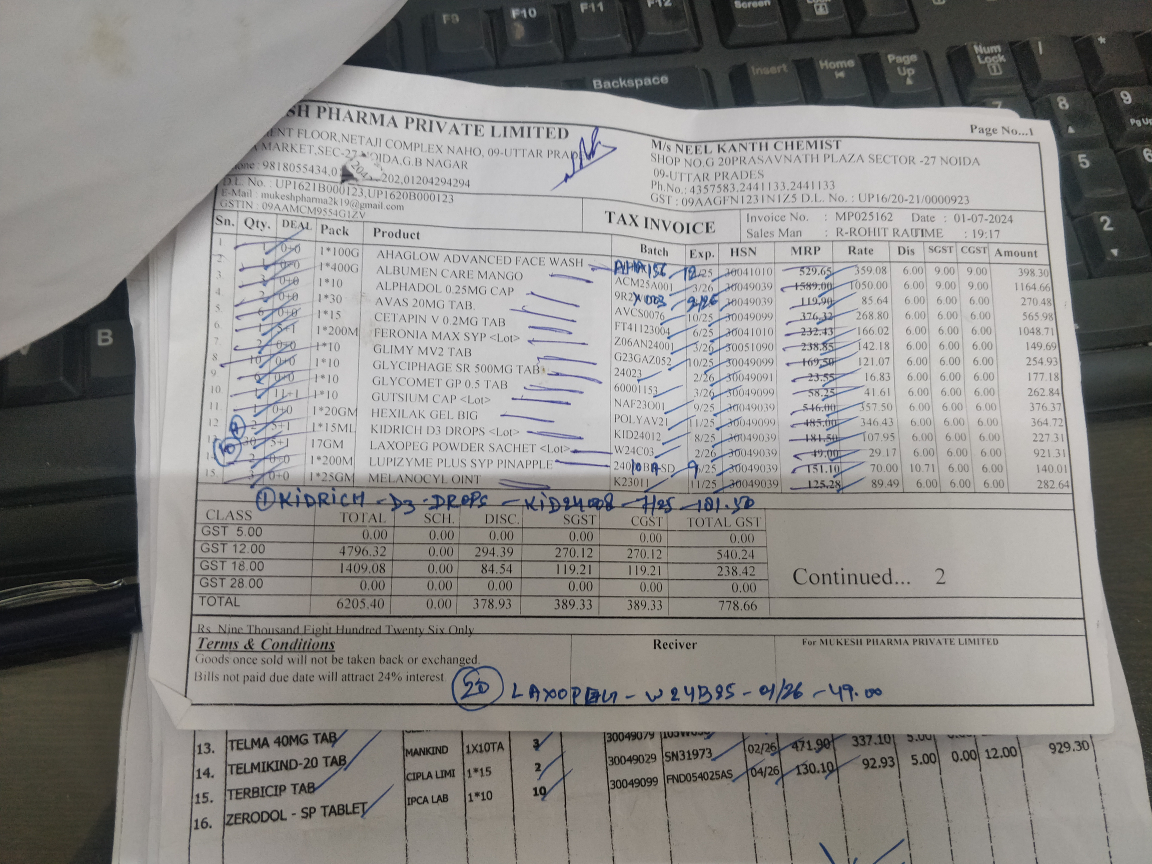 F9 F10 F11 F12 Screen
Backspace Insert Home Page Up Num Lock
8 9
5 6
2
B
SH PHARMA PRIVATE LIMITED
Page No...1
ENT FLOOR,NETAJI COMPLEX NAHO, 09-UTTAR PRAD
MARKET,SEC-27 NOIDA.G.B NAGAR
: 9818055434,0 202,01204294294
D.L. No. : UP1621B000123,UP1620B000123
E-Mail : mukeshpharma2k19@gmail.com
GSTIN : 09AAMCM9554G1ZV
M/s NEEL KANTH CHEMIST
SHOP NO.G 20PRASAVNATH PLAZA SECTOR -27 NOIDA
09-UTTAR PRADES
Ph.No.: 4357583,2441133,2441133
GST : 09AAGFN1231N1Z5 D.L. No. : UP16/20-21/0000923
TAX INVOICE
Invoice No. : MP025162 Date : 01-07-2024
Sales Man : R-ROHIT RAUTIME : 19:17
Sn. Qty. DEAL Pack Product Batch Exp. HSN MRP Rate Dis SGST CGST Amount
1*100G AHAGLOW ADVANCED FACE WASH 30041010 529.65 359.08 6.00 9.00 9.00 398.30
1*400G ALBUMEN CARE MANGO ACM25A001 3/26 30049039 1589.00 1050.00 6.00 9.00 9.00 1164.66
1*10 ALPHADOL 0.25MG CAP 30049039 119.90 85.64 6.00 6.00 6.00 270.48
1*30 AVAS 20MG TAB. AVCS0076 10/25 30049099 376.32 268.80 6.00 6.00 6.00 565.98
1*15 CETAPIN V 0.2MG TAB FT41123004 6/25 30041010 232.43 166.02 6.00 6.00 6.00 1048.71
1*200M FERONIA MAX SYP <Lot> Z06AN2400 3/26 30051090 238.85 142.18 6.00 6.00 6.00 149.69
1*10 GLIMY MV2 TAB G23GAZ052 10/25 30049099 169.50 121.07 6.00 6.00 6.00 254.93
1*10 GLYCIPHAGE SR 500MG TAB 24023 2/26 30049091 23.55 16.83 6.00 6.00 6.00 177.18
1*10 GLYCOMET GP 0.5 TAB 60001153 3/26 30049039 58.25 41.61 6.00 6.00 6.00 262.84
1*10 GUTSIUM CAP <Lot> NAF23O01 9/25 30049039 546.00 357.50 6.00 6.00 6.00 376.37
1*20GM HEXILAK GEL BIG POLYAV21 11/25 30049039 485.00 346.43 6.00 6.00 6.00 364.72
1*15ML KIDRICH D3 DROPS <Lot> KID24012 8/25 30049039 181.50 107.95 6.00 6.00 6.00 227.31
17GM LAXOPEG POWDER SACHET <Lot> W24C03 2/26 30049039 49.00 29.17 6.00 6.00 6.00 921.31
1*200M LUPIZYME PLUS SYP PINAPPLE 30049039 151.10 70.00 10.71 6.00 6.00 140.01
1*25GM MELANOCYL OINT K23011 11/25 30049039 125.28 89.49 6.00 6.00 6.00 282.64
① KIDRICH - D3 - DROPS - KID24008 - 7/25 - 181.50
CLASS TOTAL SCH. DISC. SGST CGST TOTAL GST
GST 5.00 0.00 0.00 0.00 0.00 0.00 0.00
GST 12.00 4796.32 0.00 294.39 270.12 270.12 540.24
GST 18.00 1409.08 0.00 84.54 119.21 119.21 238.42
GST 28.00 0.00 0.00 0.00 0.00 0.00 0.00
TOTAL 6205.40 0.00 378.93 389.33 389.33 778.66
Continued... 2
Rs. Nine Thousand Eight Hundred Twenty Six Only
Terms & Conditions
Goods once sold will not be taken back or exchanged.
Bills not paid due date will attract 24% interest.
Reciver
For MUKESH PHARMA PRIVATE LIMITED
20 LAXOPEG - W24B25 - 01/26 - 49.00
13. TELMA 40MG TAB 30049079
14. TELMIKIND-20 TAB MANKIND 1X10TA 3 30049029 SN31973 02/26 471.90 337.10 5.00
15. TERBICIP TAB CIPLA LIMI 1*15 2 30049099 FND054025AS 04/26 130.10 92.93 5.00 0.00 12.00 929.30
16. ZERODOL - SP TABLET IPCA LAB 1*10 10